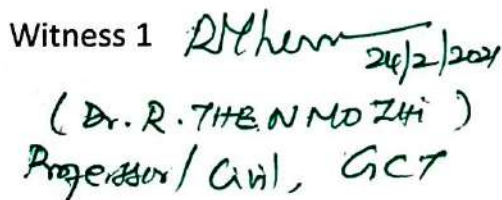 Witness 1 RThen 24/2/2021
(Dr. R. THENMOZHi)
Professor/ Civil, GCT